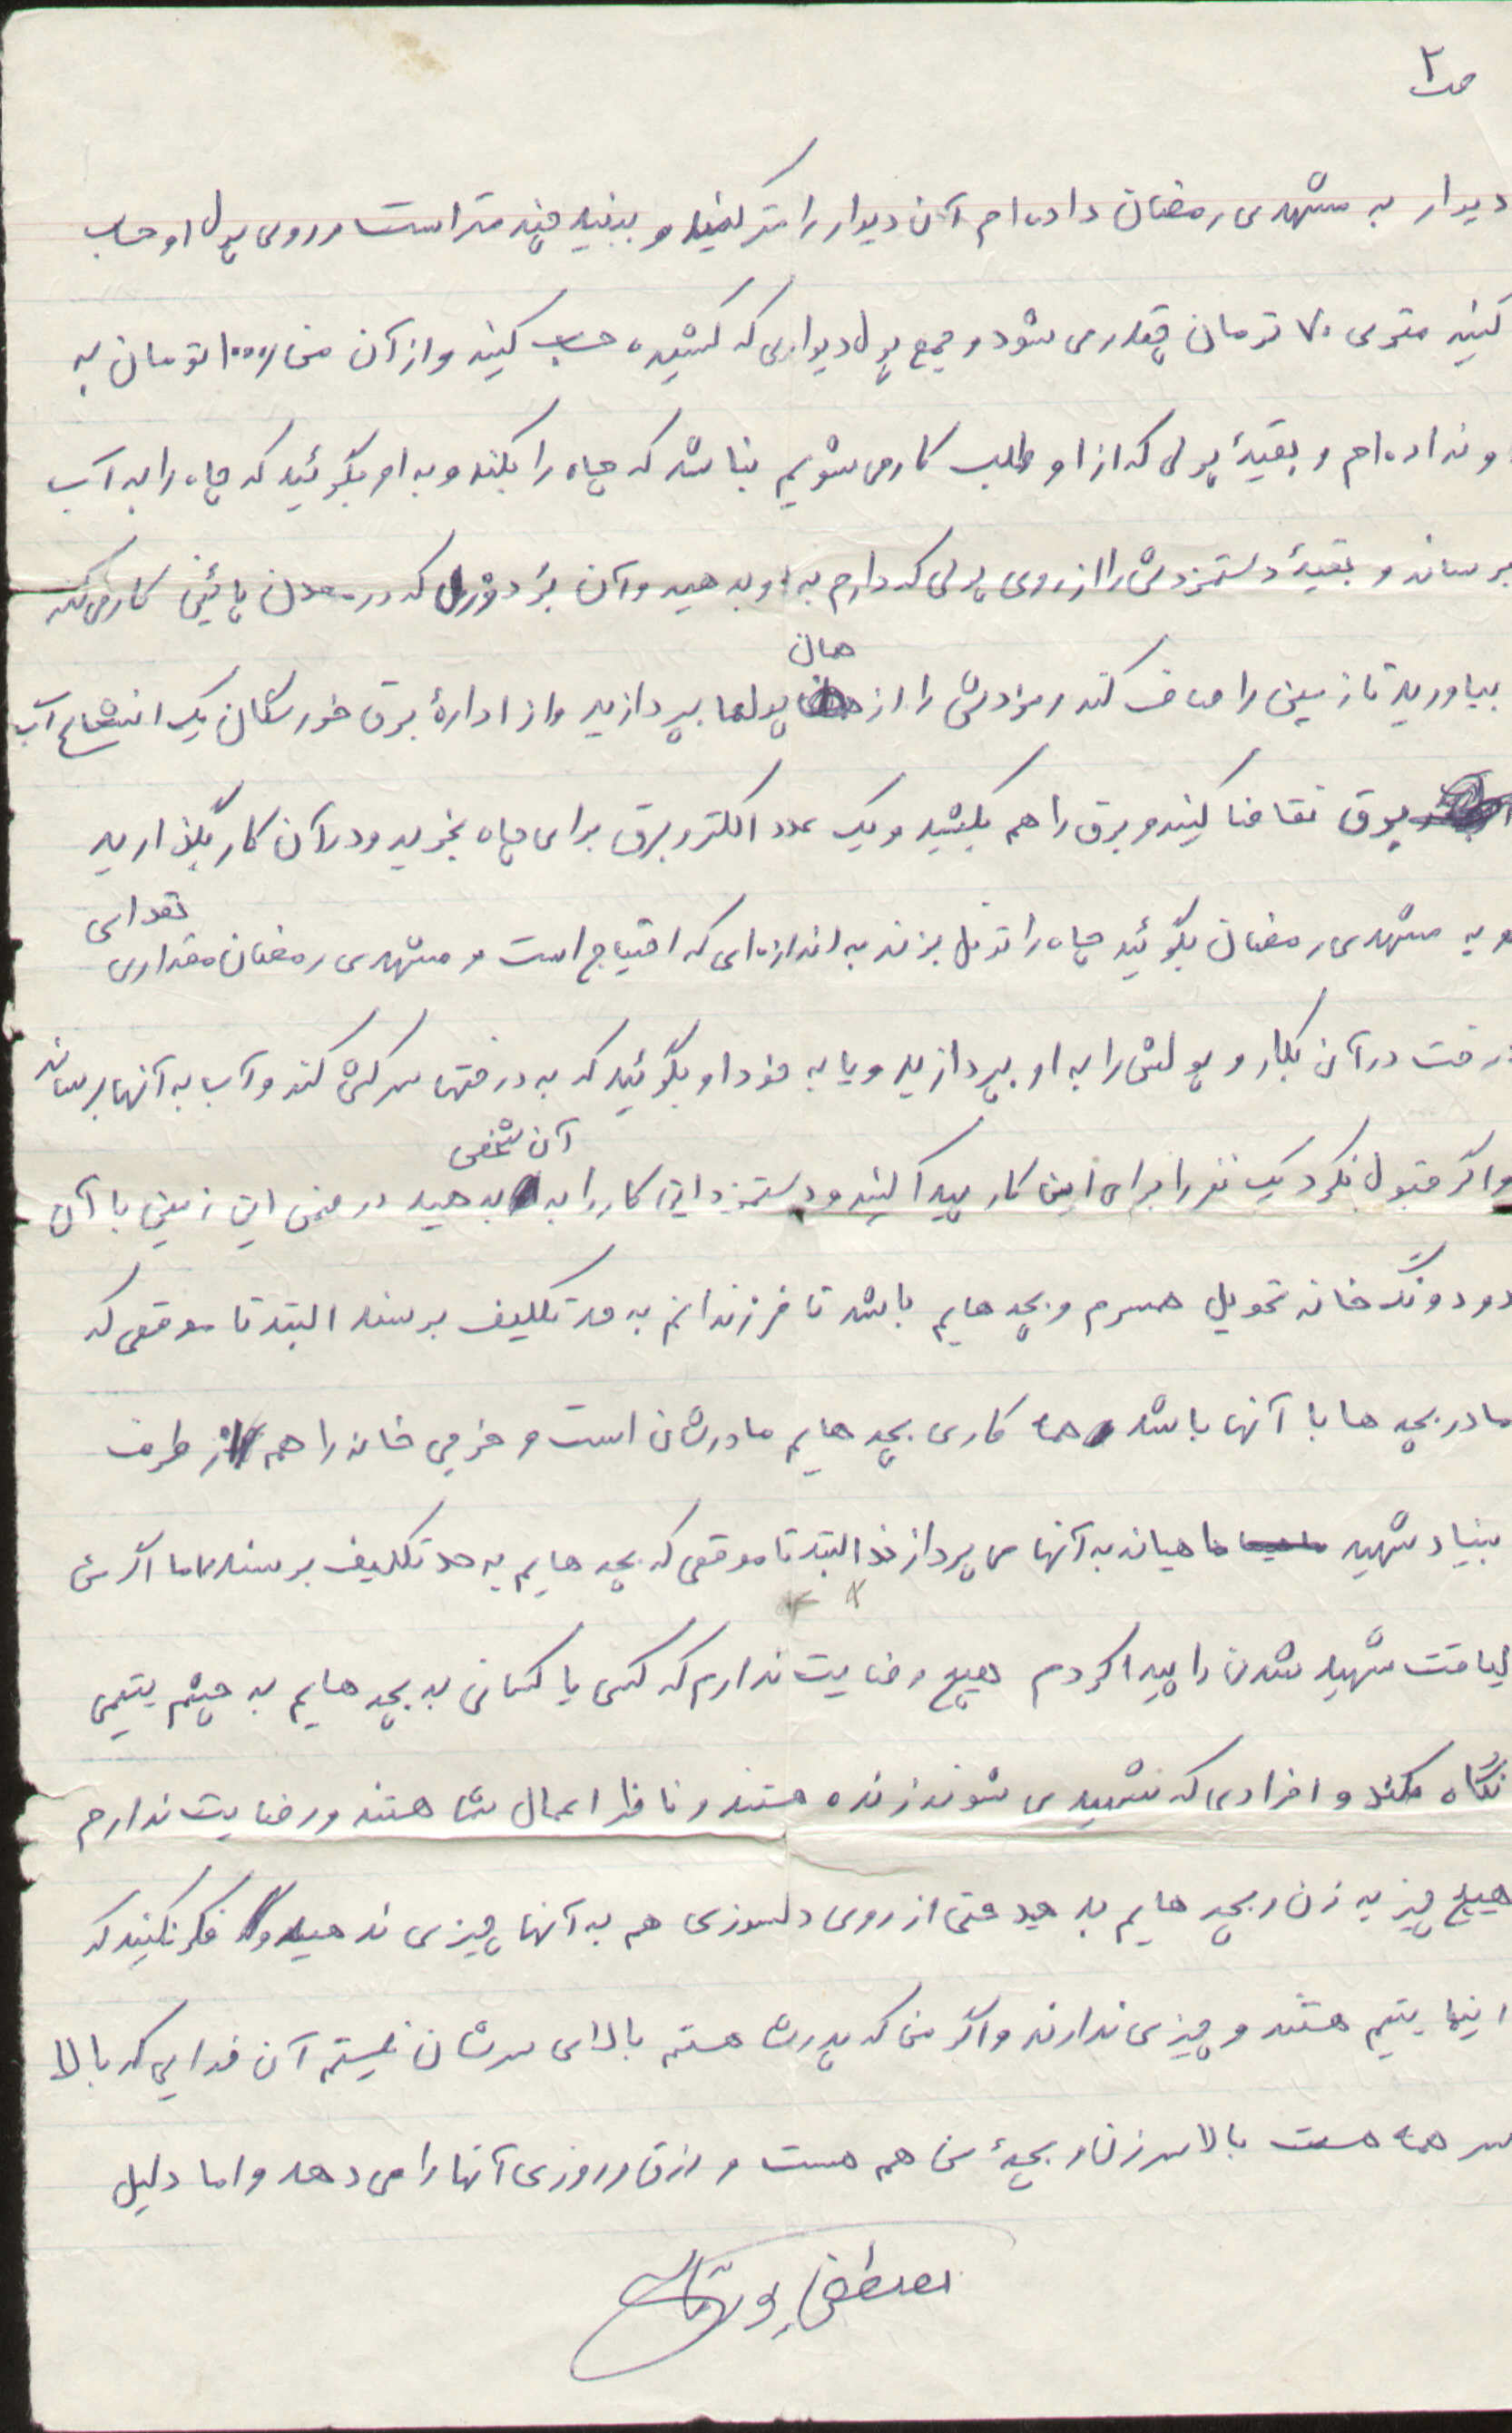 ص۲
دیوار به مشهدی رمضان داده‌ام آن دیوار را متر کنید و ببنید چند متر است و روی پول او حساب
کنید متری ۷۰ تومان چقدر می شود و جمع پول دیواری که کشیده حساب کنید و از آن من تومان به
او نداده‌ام و بقیهٔ پولی که از او طلب کار می شویم بنا شد که چاه را بکند و به او بگوئید که چاه را به آب
برساند و بقیهٔ دستمزدش را از روی پولی که دارم به او بدهید و آن که در معدن پائین کار می کند
بیاورید تا زمین را صاف کند و مزدش را از همان پولها بپردازید و از ادارهٔ برق خوراسگان یک انشعاب آب
برق تقاضا کنید و برق را هم بکشید و یک عدد الکترو برق برای چاه بخرید و در آن کار بگذارید
و به مشهدی رمضان بگوئید چاه را تونل بزند به اندازه‌ای که احتیاج است و مشهدی رمضان مقداری تعدادی
درخت در آن بکار و پولش را به او بپردازید و یا به خود او بگوئید که به درختها سرکشی کند و آب به آنها برساند
و اگر قبول نکرد یک نفر را برای این کار پیدا کنید و دستمزد این کار را به آن شخص بدهید در ضمن این زمین با آن
دو دونگ خانه تحویل همسرم و بچه هایم باشد تا فرزندانم به حد تکلیف برسند البته تا موقعی که
مادر بچه ها با آنها باشد همه کاری بچه هایم مادرشان است و خرجی خانه را هم از طرف
بنیاد شهید ماهیانه به آنها می پردازند البته تا موقعی که بچه هایم به حد تکلیف برسند اما اگر من
لیاقت شهید شدن را پیدا کردم هیچ رضایت ندارم که کسی یا کسانی به بچه هایم به چشم یتیمی
نگاه کند و افرادی که شهید می شوند زنده هستند و ناظر اعمال شما هستند و رضایت ندارم
هیچ چیز به زن و بچه هایم بدهید حتی از روی دلسوزی هم به آنها چیزی ندهید و فکر نکنید که
اینها یتیم هستند و چیزی ندارند و اگر من که پدرشان هستم بالای سرشان نیستم آن خدایی که بالا
سر همه هست بالا سر زن و بچهٔ من هم هست و رزق و روزی آنها را می دهد و اما دلیل
مصطفی